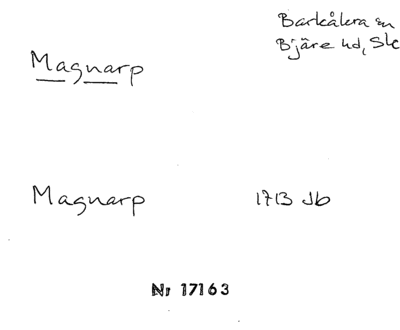 Barkåkra sn
Bjäre hd, Sk
Magnarp
Magnarp 1713 Jb
Nr 17163